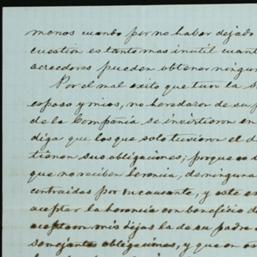 menos cuando por no haber dejado
cuestion es tanto mas inutil cuant
acreedores pueden obtener ningun
Por el mal exito que tuvo la S
esposo y mios, no heredaron de su p
de la Compañia se invirtieron en
diga que los que solo tuvieron el d
tienen sus obligaciones; porque es d
que no reciben herencia, de ninguna
contraidas por su causante, y este es
aceptar la herencia con beneficio d
aceptaron mis hijas la de su padre
semejantes obligaciones, y que en